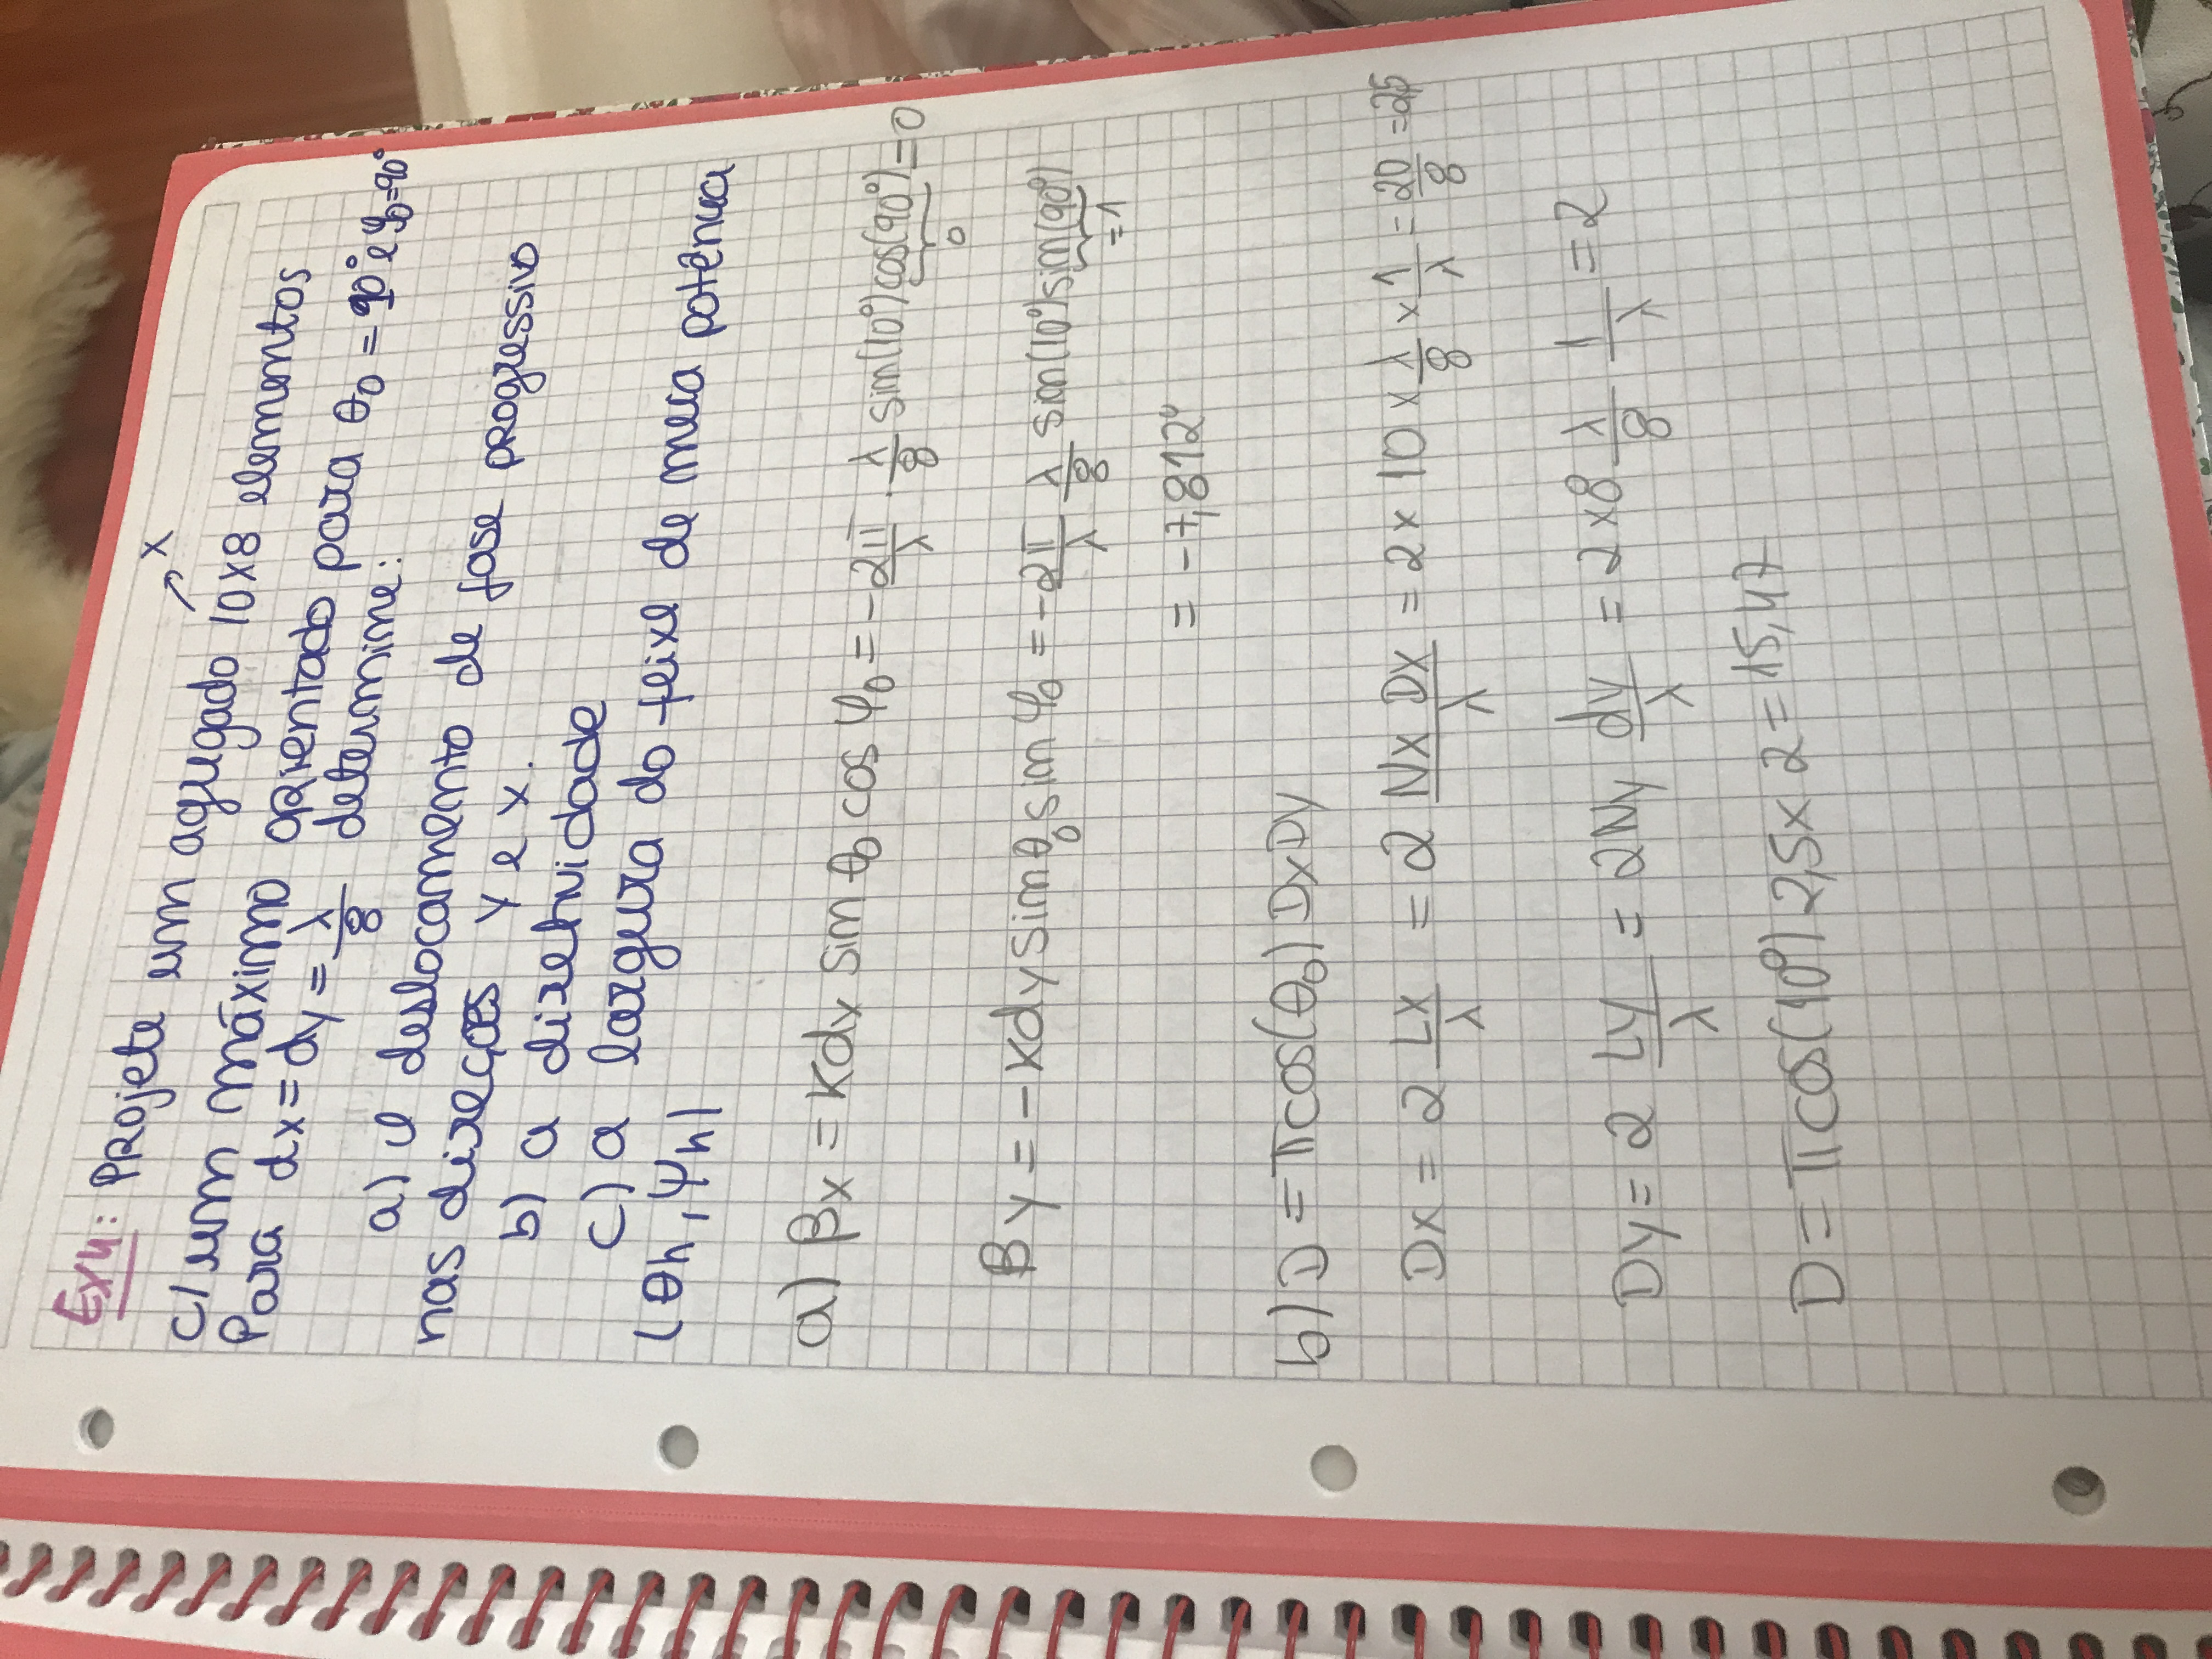 Ex4: Projete um agregado 10x8 elementos
→ x
c/ um máximo orientado para θ0 = 10° e φ0=90°
Para dx = dy = λ/8 determine:
a) O deslocamento de fase progressivo
nas direções y e x.
b) a diretividade
c) a largura do feixe de meia potência
(θh, ψh)
a) βx = Kdx sin θ0 cos φ0 = -2π/λ · λ/8 sin(10°) cos(90°) = 0
0
By = -Kdy sin θ0 sin φ0 = -2π/λ λ/8 sin(10°) sin(90°)
=1
= -7,812°
b) D = π cos(θ0) Dx Dy
Dx = 2 Lx/λ = 2 Nx Dx/λ = 2 x 10 x λ/8 x 1/λ = 20/8 = 2,5
Dy = 2 Ly/λ = 2Ny dy/λ = 2x8 λ/8 1/λ = 2
D = π cos(10°) 2,5 x 2 = 15,47